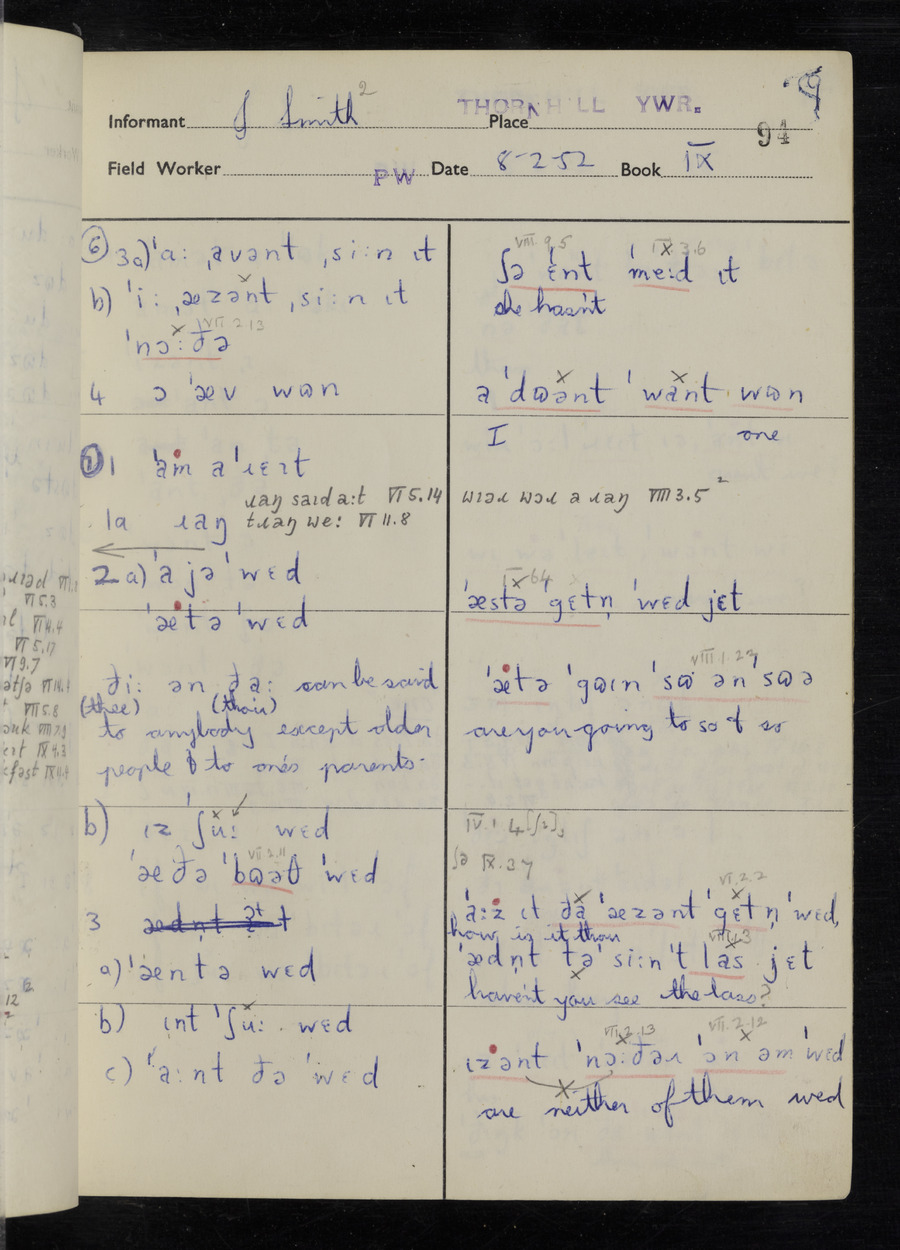 Informant J Smith² Place THORNHILL YWR.
94
Field Worker PW Date 8-2-52 Book IX
⑥ 3a) ˈaː ˌavənt ˌsiːn ɪt
b) ˈiː ˌæzənt ˌsiːn ɪt
VII 2 13
ˈnɔːðə
4 ɔ ˈæv wɒn
⑦ 1 ˈam aˈɹɛɪt
ɹaŋ saɪd aːt VI 5.14
1a ɹaŋ tɹaŋ weː VI 11.8
2 a) ˈa jə ˈwɛd
ˈætə ˈwɛd
ðiː ən ðaː can be said
(thee) (thou)
to anybody except older
people & to one's parents.
b) ɪz ˈʃuː wɛd
VII 2.11
ˈæ ðə ˈbʊəθ ˈwɛd
3
a) ˈæntə wɛd
b) ɪnt ˈʃuː wɛd
c) ˈaːnt ðə ˈwɛd
VIII. 9.5 IX 3.6
ʃə ˈɛnt ˈmeːd ɪt
she hasn't
a ˈdʊənt ˈwant wɒn
I one
wɪəɹ wəɹ a ɹaŋ VIII 3.5²
IX 64
ˈæstə ˈgɛtn̩ ˈwɛd jɛt
VIII.1.27
ˈætə ˈgʊɪn ˈsʊ ən ˈsʊə
are you going to so & so
IV.1 4 [ʃə],
ʃə IX.3 7
VI.2.2
ˈaːz ɪt ða ˈæzənt ˈgɛtn̩ ˈwɛd,
how is it thou
ˈædn̩t tə ˈsiːn ˈt las jɛt
haven't you see the lass?
VII.2.13 VII.2.12
ɪzənt ˈnɔːðəɹ ˈən əm ˈwɛd
are neither of them wed
VI 5.3
VI 4.4
VI 5.17
VI 9.7
VI 14.1
VII 5.8
IX 4.3
12